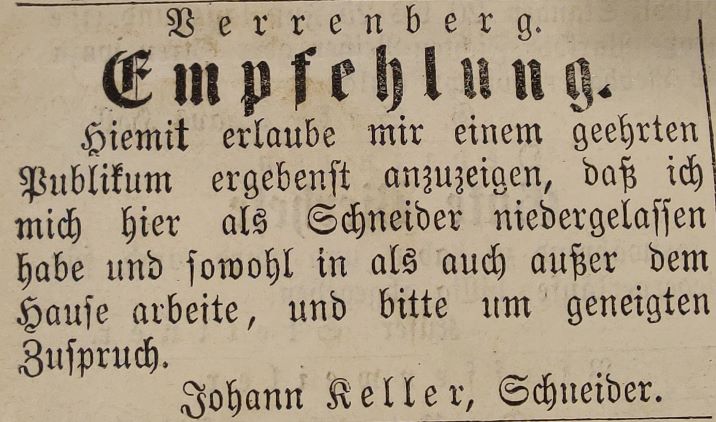 Verrenberg.
Empfehlung.
Hiemit erlaube mir einem geehrten
Publikum ergebenst anzuzeigen, daß ich
mich hier als Schneider niedergelassen
habe und sowohl in als auch außer dem
Hause arbeite, und bitte um geneigten
Zuspruch.
Johann Keller, Schneider.